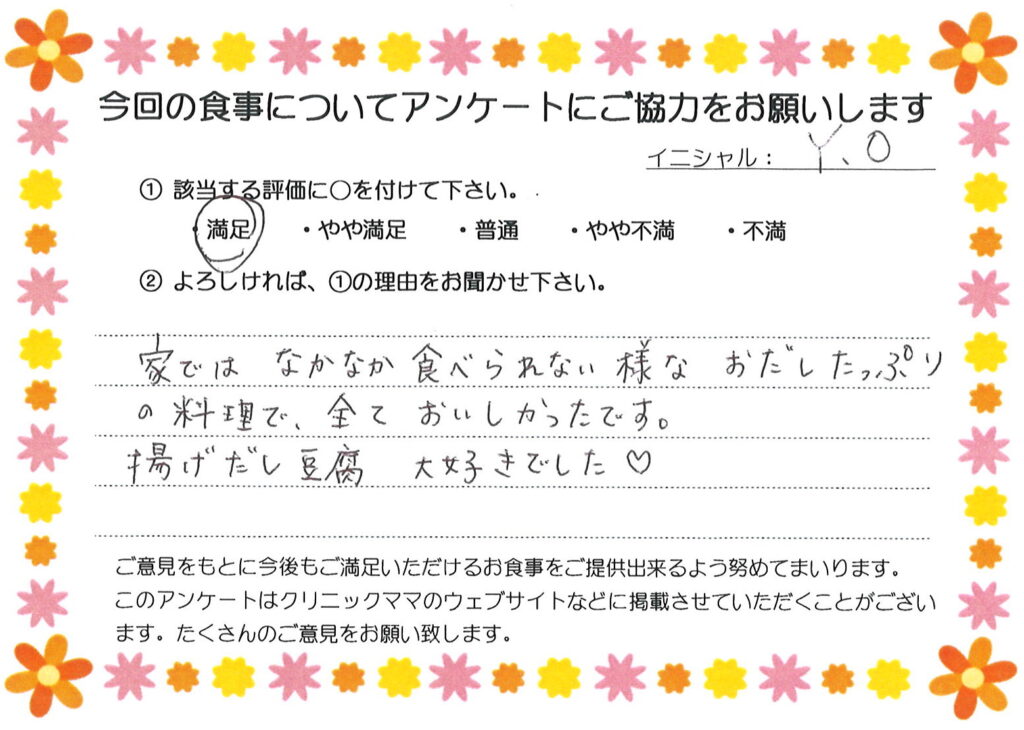 今回の食事についてアンケートにご協力をお願いします
イニシャル： Y、O
① 該当する評価に〇を付けて下さい。
・満足 ・やや満足 ・普通 ・やや不満 ・不満
② よろしければ、①の理由をお聞かせ下さい。
家では なかなか 食べられない 様な おだしたっぷり
の 料理で、全て おいしかったです。
揚げだし豆腐 大好きでした♡
ご意見をもとに今後もご満足いただけるお食事をご提供出来るよう努めてまいります。
このアンケートはクリニックママのウェブサイトなどに掲載させていただくことがござい
ます。たくさんのご意見をお願い致します。